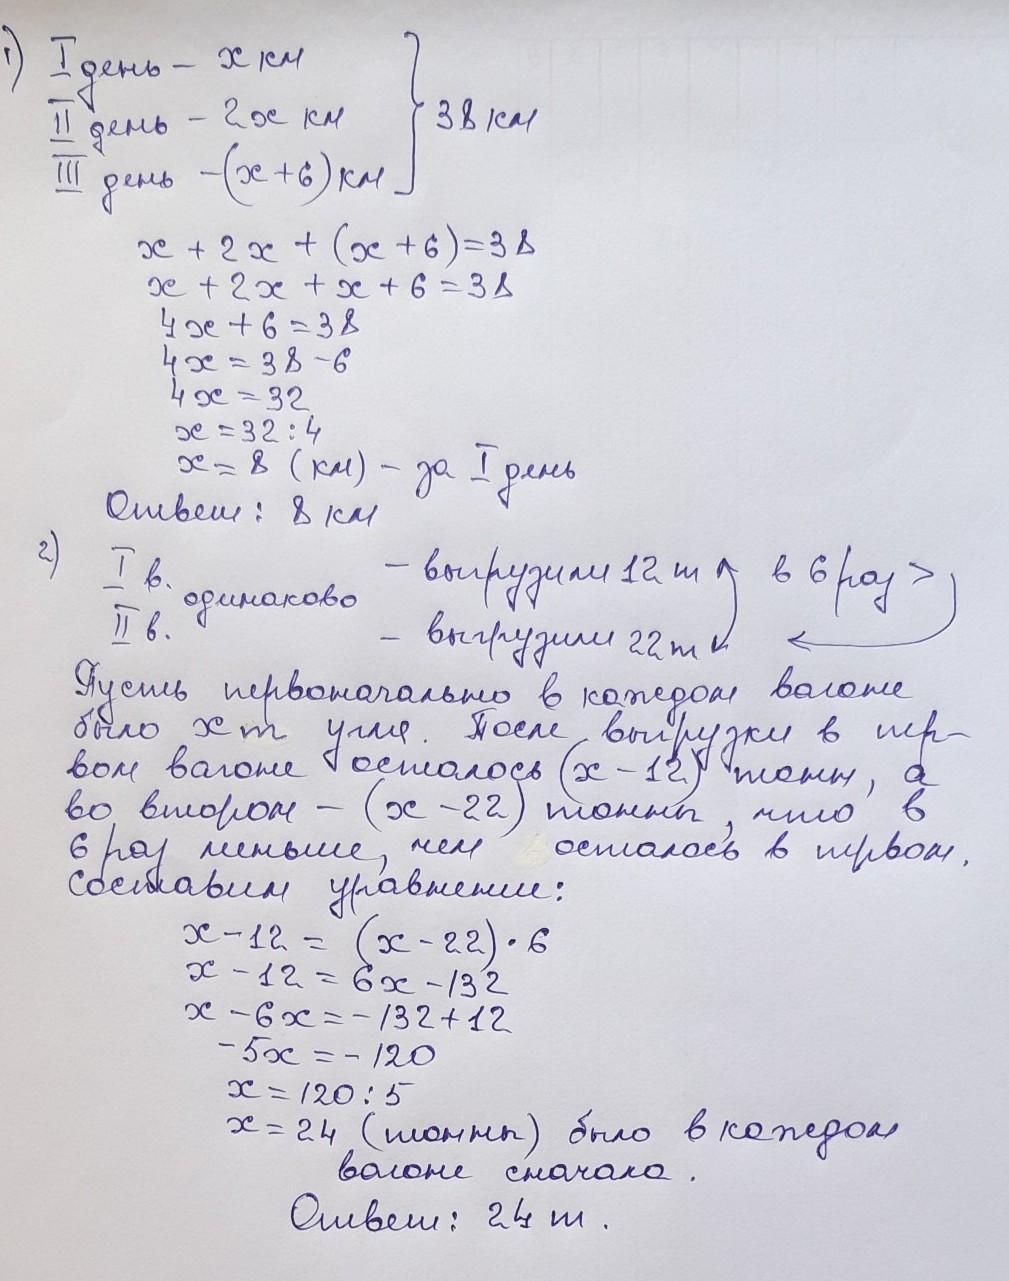 1) I день – x км
II день – 2x км } 38 км
III день – (x+6) км
x + 2x + (x+6)=38
x + 2x + x + 6 = 38
4x + 6 = 38
4x = 38 - 6
4x = 32
x = 32 : 4
x = 8 (км) – за I день
Ответ: 8 км
2) I в. – выгрузили 12 т в 6 раз >
одинаково
II в. – выгрузили 22 т
Пусть первоначально в каждом вагоне
было x т угля. После выгрузки в пер-
вом вагоне осталось (x-12) тонн, а
во втором – (x-22) тонны, что в
6 раз меньше, чем осталось в первом.
Составим уравнение:
x - 12 = (x - 22) · 6
x - 12 = 6x - 132
x - 6x = -132 + 12
-5x = -120
x = 120 : 5
x = 24 (тонны) было в каждом
вагоне сначала.
Ответ: 24 т.